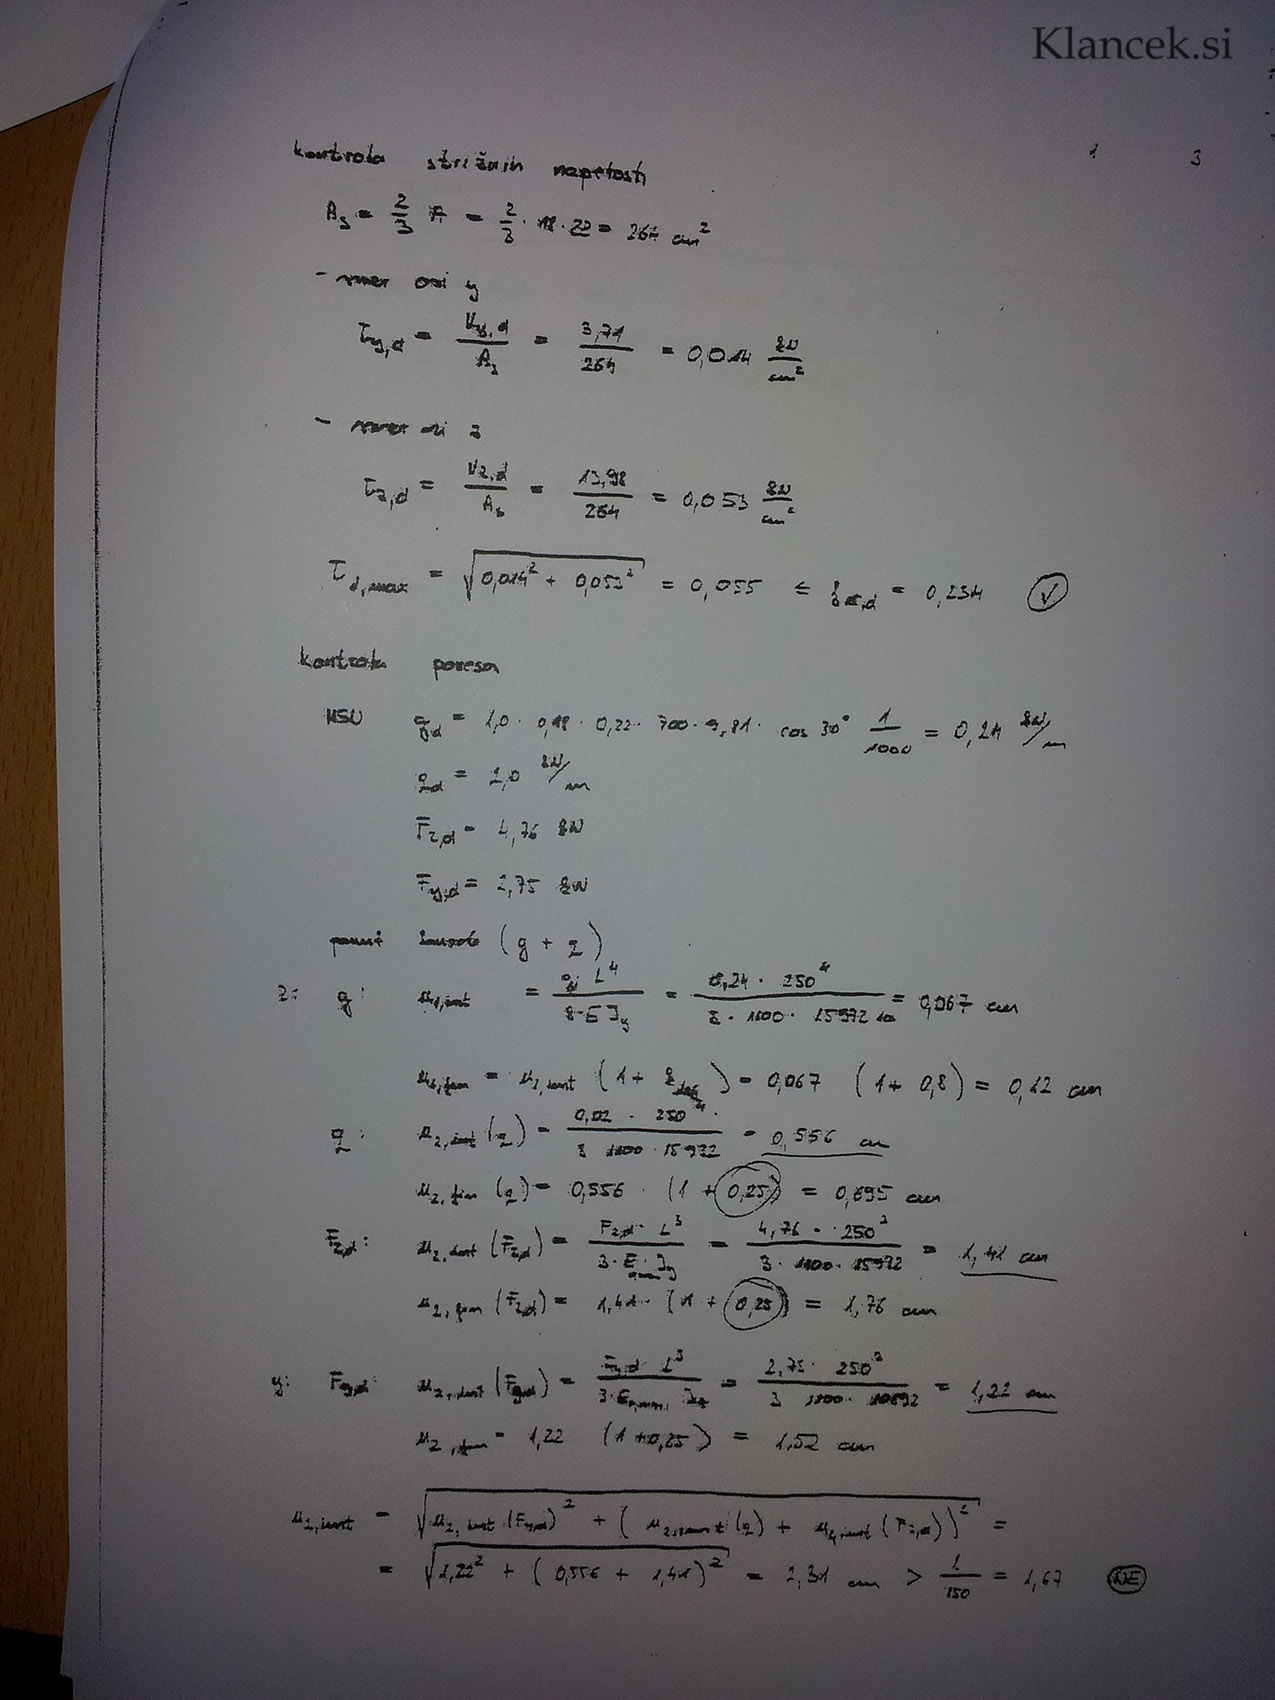 Klancek.si
1 3
kontrola strižnih napetosti
A_s = 2/3 A = 2/3 · 18 · 22 = 264 cm²
- smer osi y
τ_y,d = V_y,d / A_s = 3,71 / 264 = 0,014 kN/cm²
- smer osi z
τ_z,d = V_z,d / A_s = 13,98 / 264 = 0,053 kN/cm²
τ_d,max = √(0,014² + 0,053²) = 0,055 ≤ f_v,d = 0,234 ✓
kontrola povesa
MSU g_d = 1,0 · 0,18 · 0,22 · 700 · 9,81 · cos 30° 1/1000 = 0,24 kN/m
q_d = 2,0 kN/m
F_z,d = 4,76 kN
F_y,d = 2,75 kN
(g + q)
z: g: u_1,inst = g_d L⁴ / 8·E I_y = 0,24 · 250⁴ / 8 · 1100 · 15972 = 0,067 cm
u_1,fin = u_1,inst (1 + k_def) = 0,067 (1 + 0,8) = 0,12 cm
q: u_2,inst (q) = 0,02 · 250⁴ / 8 · 1100 · 15972 = 0,556 cm
u_2,fin (q) = 0,556 · (1 + 0,25) = 0,695 cm
F_z,d: u_2,inst (F_z,d) = F_z,d · L³ / 3 · E · I_y = 4,76 · 250³ / 3 · 1100 · 15972 = 1,41 cm
u_2,fin (F_z,d) = 1,41 · (1 + 0,25) = 1,76 cm
y: F_y,d: u_2,inst (F_y,d) = F_y,d · L³ / 3 · E I_z = 2,75 · 250³ / 3 · 1100 · 10692 = 1,22 cm
u_2,fin = 1,22 (1+0,25) = 1,52 cm
u_2,inst = √(u_2,inst (F_y,d)² + (u_2,inst (q) + u_2,inst (F_z,d))²) =
= √(1,22² + (0,556 + 1,41)²) = 2,31 cm > L/150 = 1,67 NE